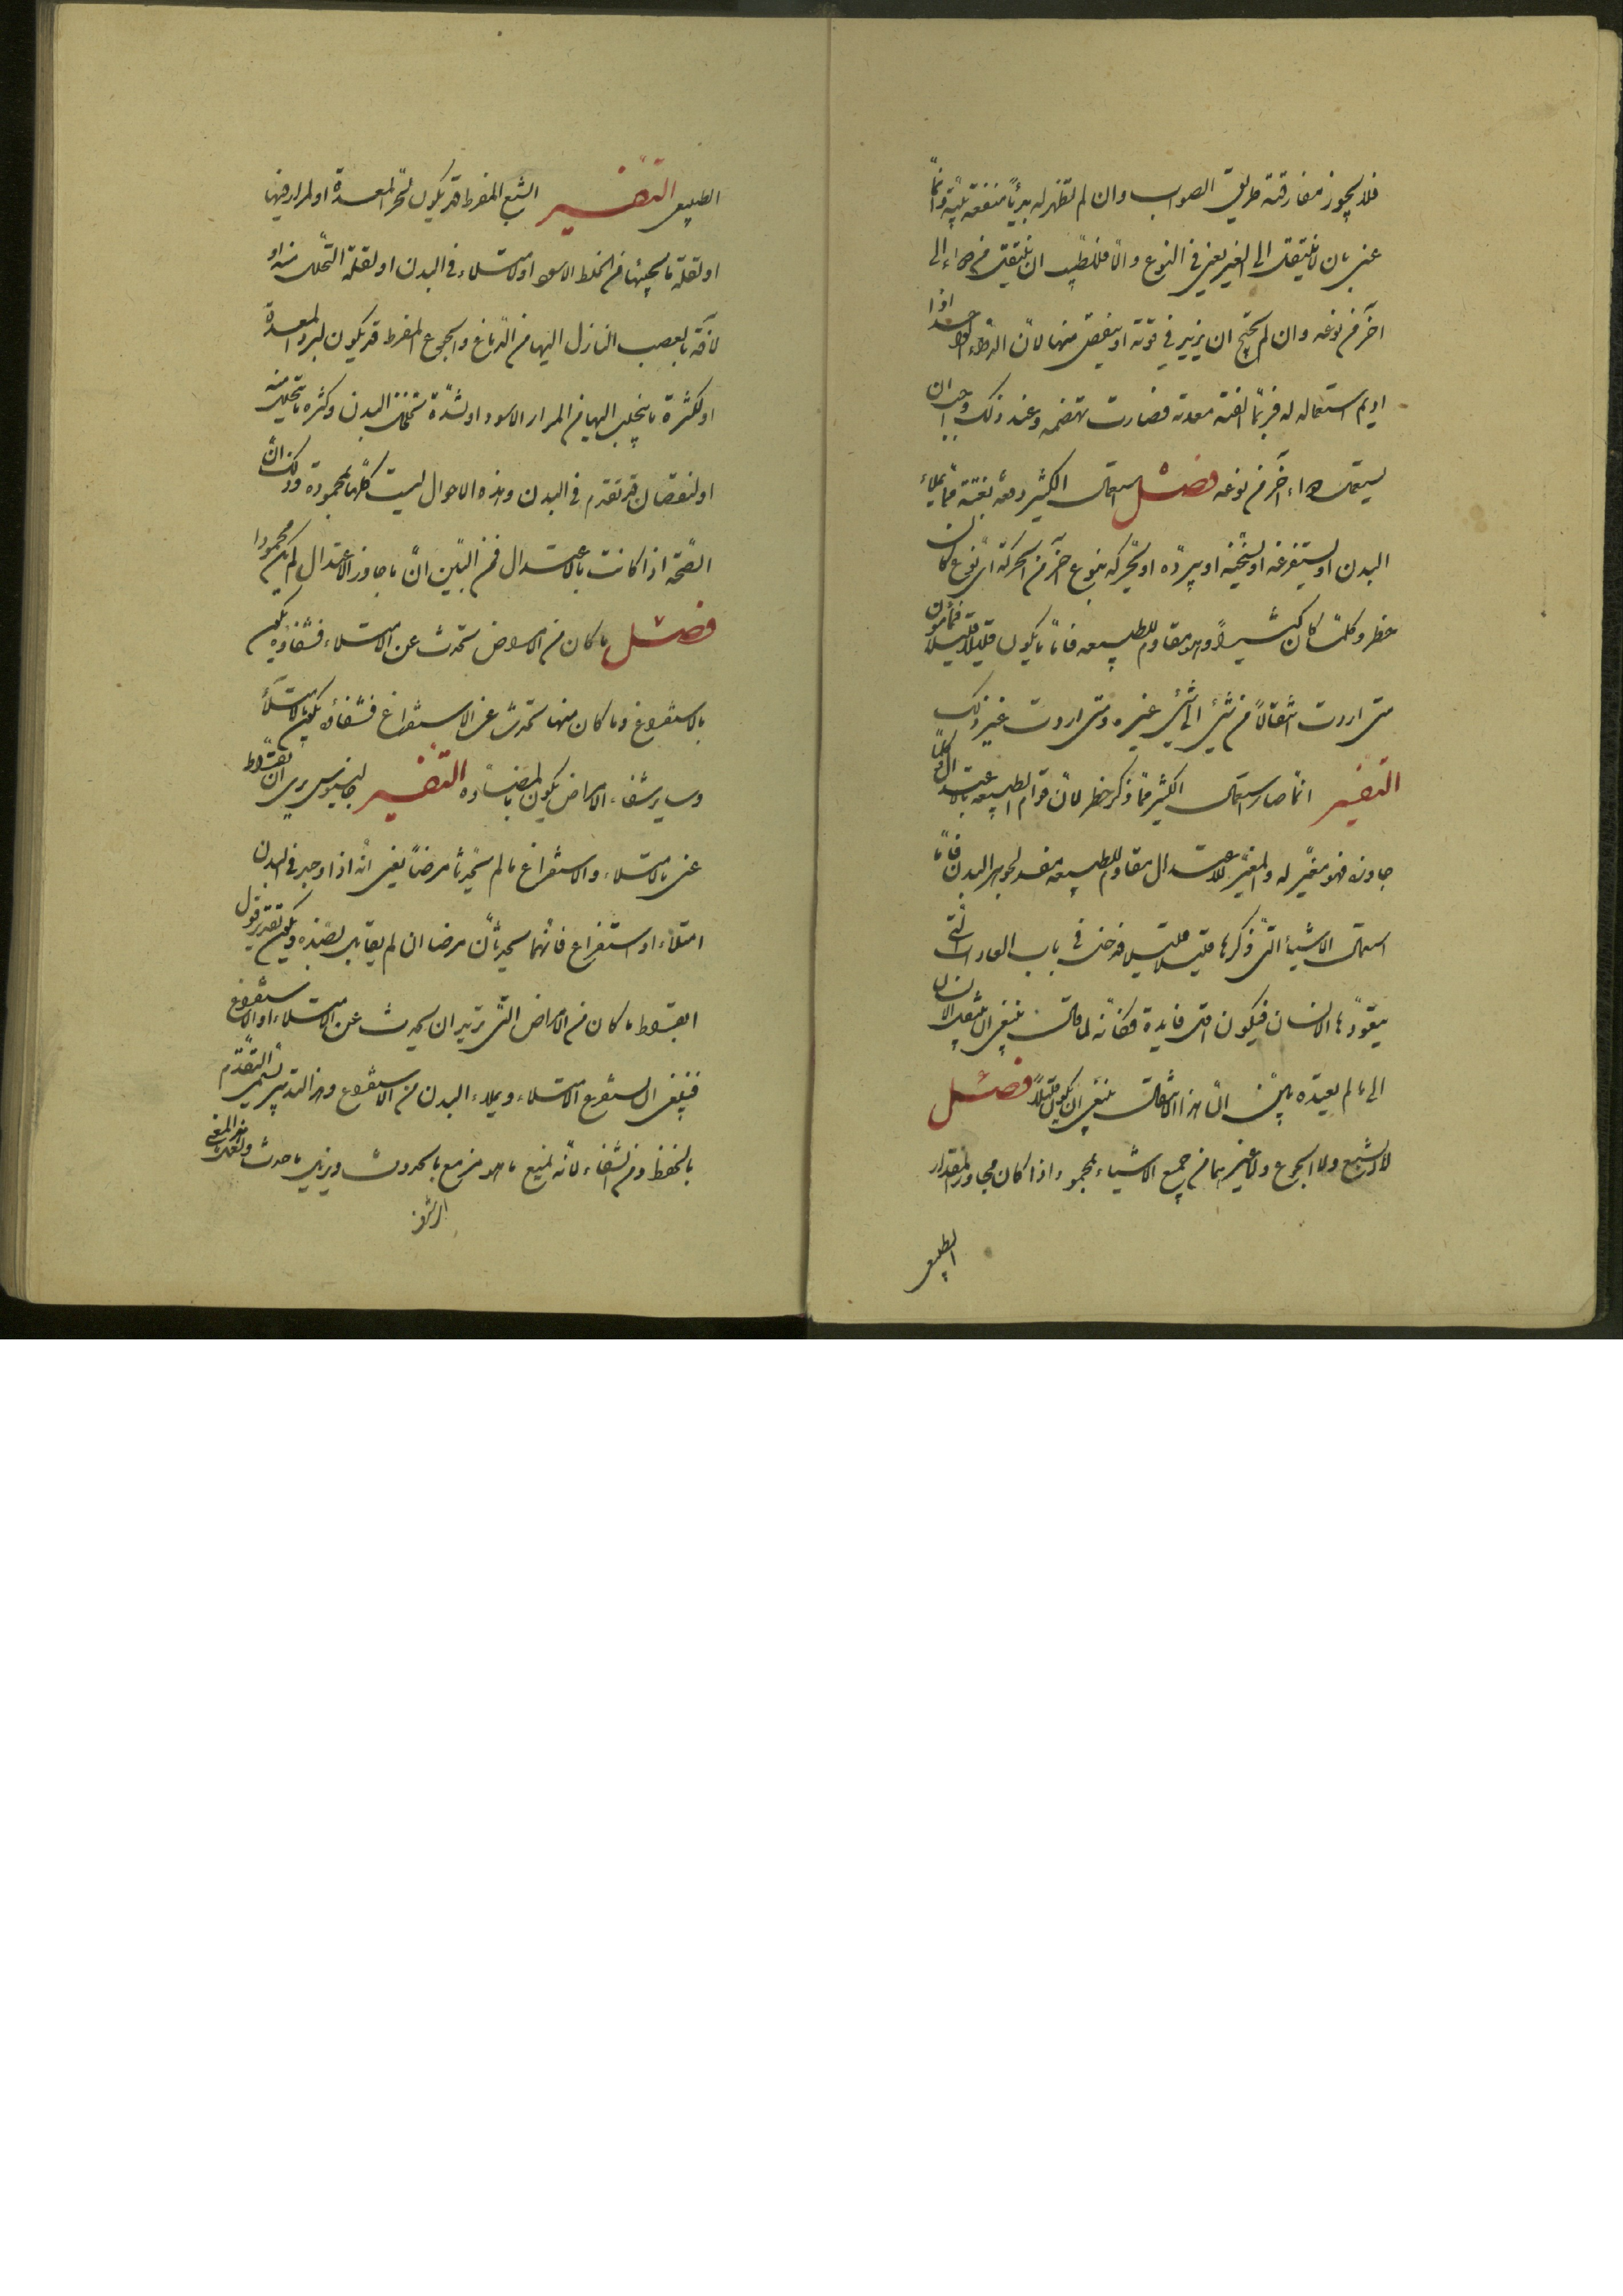 فلا يجوز مفارقته طريق الصواب وان لم تظهر له بديّاً منفعة بيّنة وانّما
عنى بان لا ينتقل الى الغير يعنى فى النوع والّا فللطبيب ان ينتقل من دواء الى
آخر من نوعه وان لم يحتج ان يزيد فى قوته او ينقص منها لانّ الدواء الواحد اذا
اديم استعماله له فربّما الفته معدته فصارت تهضمه وعند ذلك وجب ان
يستعمل دواء آخر من نوعه فصل استعمال الكثير دفعة بغتة ممّا يملاء
البدن او يستفرغه او يسخّنه او يبرّده او يحرّكه بنوع آخر من الحركة اىّ نوع كان
خطر وكلّما كان كثيراً وهو مقاوم للطبيعة فامّا ما يكون قليلا قليلا فمأمون
متى اردت انتقالاً من شئ الى شئ غيره ومتى اردت غير ذلك
التفسير انّما صار استعمال الكثير ممّا ذكر خطر لانّ قوام الطبيعة بالاعتدال وكلّما
جاوزه فهو مغيّر له والمغيّر للاعتدال مقاوم للطبيعة مفسد لجوهر البدن فامّا
استعمال الاشياء التى ذكرها قليلا قليلا فداخل فى باب العادات التى
يتعوّدها الانسان فيكون اقل فايدة فكانّه لما قال ينبغى ان ينتقل الانسان
الى ما لم يعتده بيّن انّ هذا الانتقال ينبغى ان يكون قليلاً فصل
لا الشبع ولا الجوع ولا غيرهما من جميع الاشياء بمحمود اذا كان مجاوز المقدار
الطبيعى
الطبيعى التفسير الشبع المفرط قد يكون لحرّ المعدة او لمرار فيها
او لقلة ما يجيئها من الخلط الاسود او لامتلاء فى البدن او لقلة التحلّل منه او
لآفة بالعصب النازل اليها من الدّماغ والجوع المفرط قد يكون لبرد المعدة
او لكثرة ما ينجلب اليها من المرار الاسود او لشدّة تخلخل البدن وكثره ما يتحلّل منه
او لنقصان قد تقدم فى البدن وهذه الاحوال ليست كلّها بمحمودة وذلك انّ
الصّحّة اذا كانت بالاعتدال فمن البيّن انّ ما جاوز الاعتدال لم يكن محموداً
فصل ما كان من الامراض يحدث عن الامتلاء فشفاؤه يكون
بالاستفراغ وما كان منها يحدث عن الاستفراغ فشفاؤه يكون بالامتلاء
وساير شفاء الامراض يكون بالمضادّه التفسير جالينوس يرى ان بقراط
عنى بالامتلاء والاستفراغ ما لم يحدثا مرضاً يعنى انّه اذا وجد فى البدن
امتلاء او استفراغ فانّهما سيحدثان مرضا ان لم يقابل بضدّه ويكون تقدير قول
ابقراط ما كان من الامراض التى تريد ان يحدث عن الامتلاء او الاستفراغ
فينبغى ان يستفرغ الامتلاء ويملاء البدن من الاستفراغ وهذا التدبير يسمّى التقدّم
بالحفظ ومن الشفاء لانّه يمنع ما هو مزمع بالحدوث ويزيل ما حدث ولعلّ